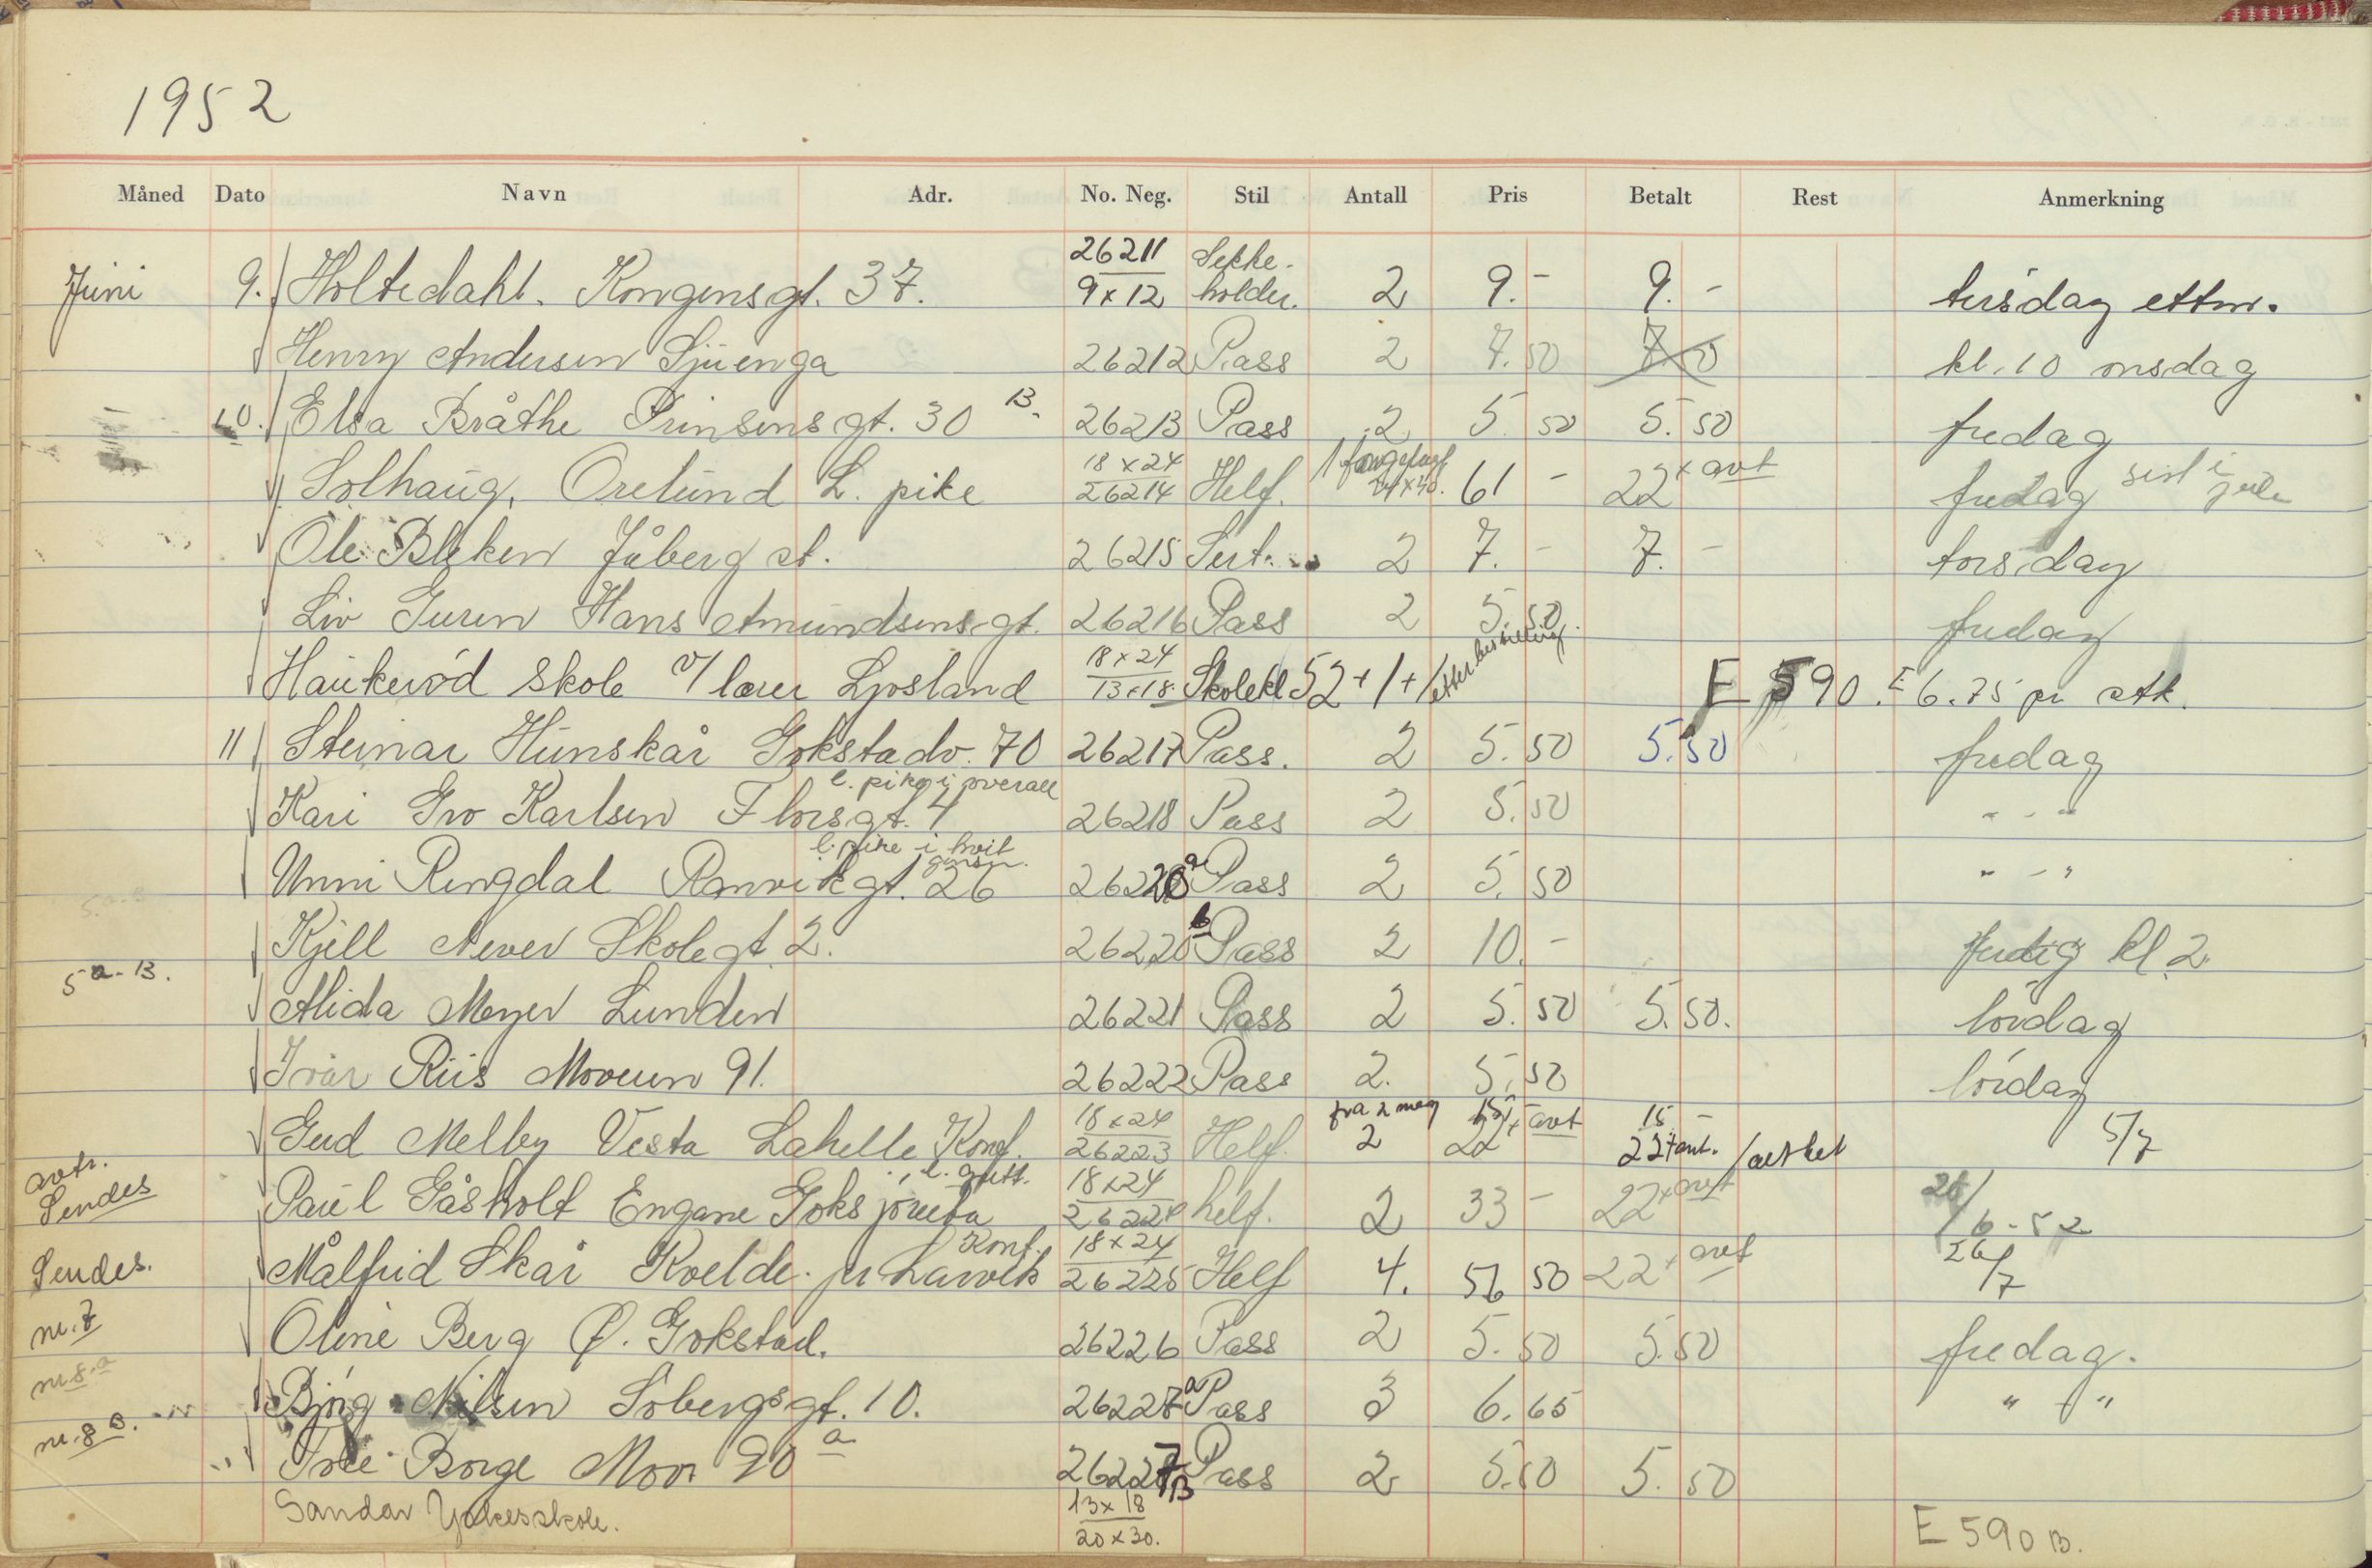 1952
Måned Dato Navn Adr. No. Neg. Stil Antall Pris Betalt Rest Anmerkning
Juni 9. Holtedahl. Kongensgt. 37. 26211 9x12 Sekke- holder. 2 9.- 9.- tirsdag ettm.
Henry Andersen Sjuenga 26212 Pass 2 7.50 7.50 kl. 10 onsdag
10. Elsa Bråthe Prinsensgt. 30 B. 26213 Pass 2 5.50 5.50 fredag
Solhaug, Orelund L. pike 18x24 26214 Helf. 1 24x30. 61 - 22 + avt fredag sist i
Ole Bleken Jåberg st. 26215 Sert. 2 7.- 7.- torsdag
Liv Guren Hans Amundsensgt. 26216 Pass 2 5.50 fredag
Haukerød skole v/ lærer Ljosland 18x24 13x18. Skolekl 52+1+1 etterbestilling E 590. E 6.75 pr stk.
11 Steinar Hunskår Gokstadv. 70 26217 Pass. 2 5.50 5.50 fredag
l. pike i overall
Kari Gro Karlsen Florsgt. 4 26218 Pass 2 5.50 " - "
l. pike i hvit genser.
Unni Ringdal Ranvikgt. 26 26220 a Pass 2 5.50 " - "
Kjell Never Skolegt 2. 26220 b Pass 2 10.- fredag kl 2.
5 a-B.
Alida Meyer Lunden 26221 Pass 2 5.50 5.50. lördag
Ivar Riis Moveien 91. 26222 Pass 2. 5.50 lördag
Gerd Melby Vesta Lahelle Konf. 18x24 26223 Helf. fra 2 neg 2 15 + avt 22 15 - 22 + avt. 5/7
avtr. Sendes Paul Gåsholt Engane Goksjörueta l. gutt. 18x24 26224 helf. 2 33 - 22 + avt 26/6-52
Sendes. Målfrid Skår Kvelde. pr Larvik Konf. 18x24 26225 Helf 4. 56 50 22 + avt 26/7
nr. 7 Oline Berg Ø. Gokstad. 26226 Pass 2 5.50 5.50 fredag.
nr. 8.a Bjørg Nilsen Sobergsgt. 10. 26227 a Pass 3 6.65 " - "
nr. 8 B. Borge Moen 90 a 26227 B Pass 2 5.50 5.50
Sandar Yrkesskole. 13x18 20x30. E 590 B.